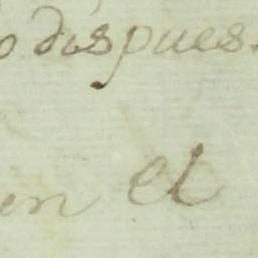 o dispues.
en el